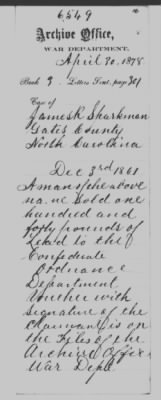 6549
Archive Office,
WAR DEPARTMENT,
April 20, 1878
Book 3. Letters Sent, page 301
Case of
James K. Sparkman
Gates County
North Carolina
Dec 3rd 1861
A man of the above
name sold one
hundred and
forty pounds of
Lead to the
Confederate
Ordnance
Department
Voucher with
signature of the
Claimant is on
the files of the
Archive Office
War Dept